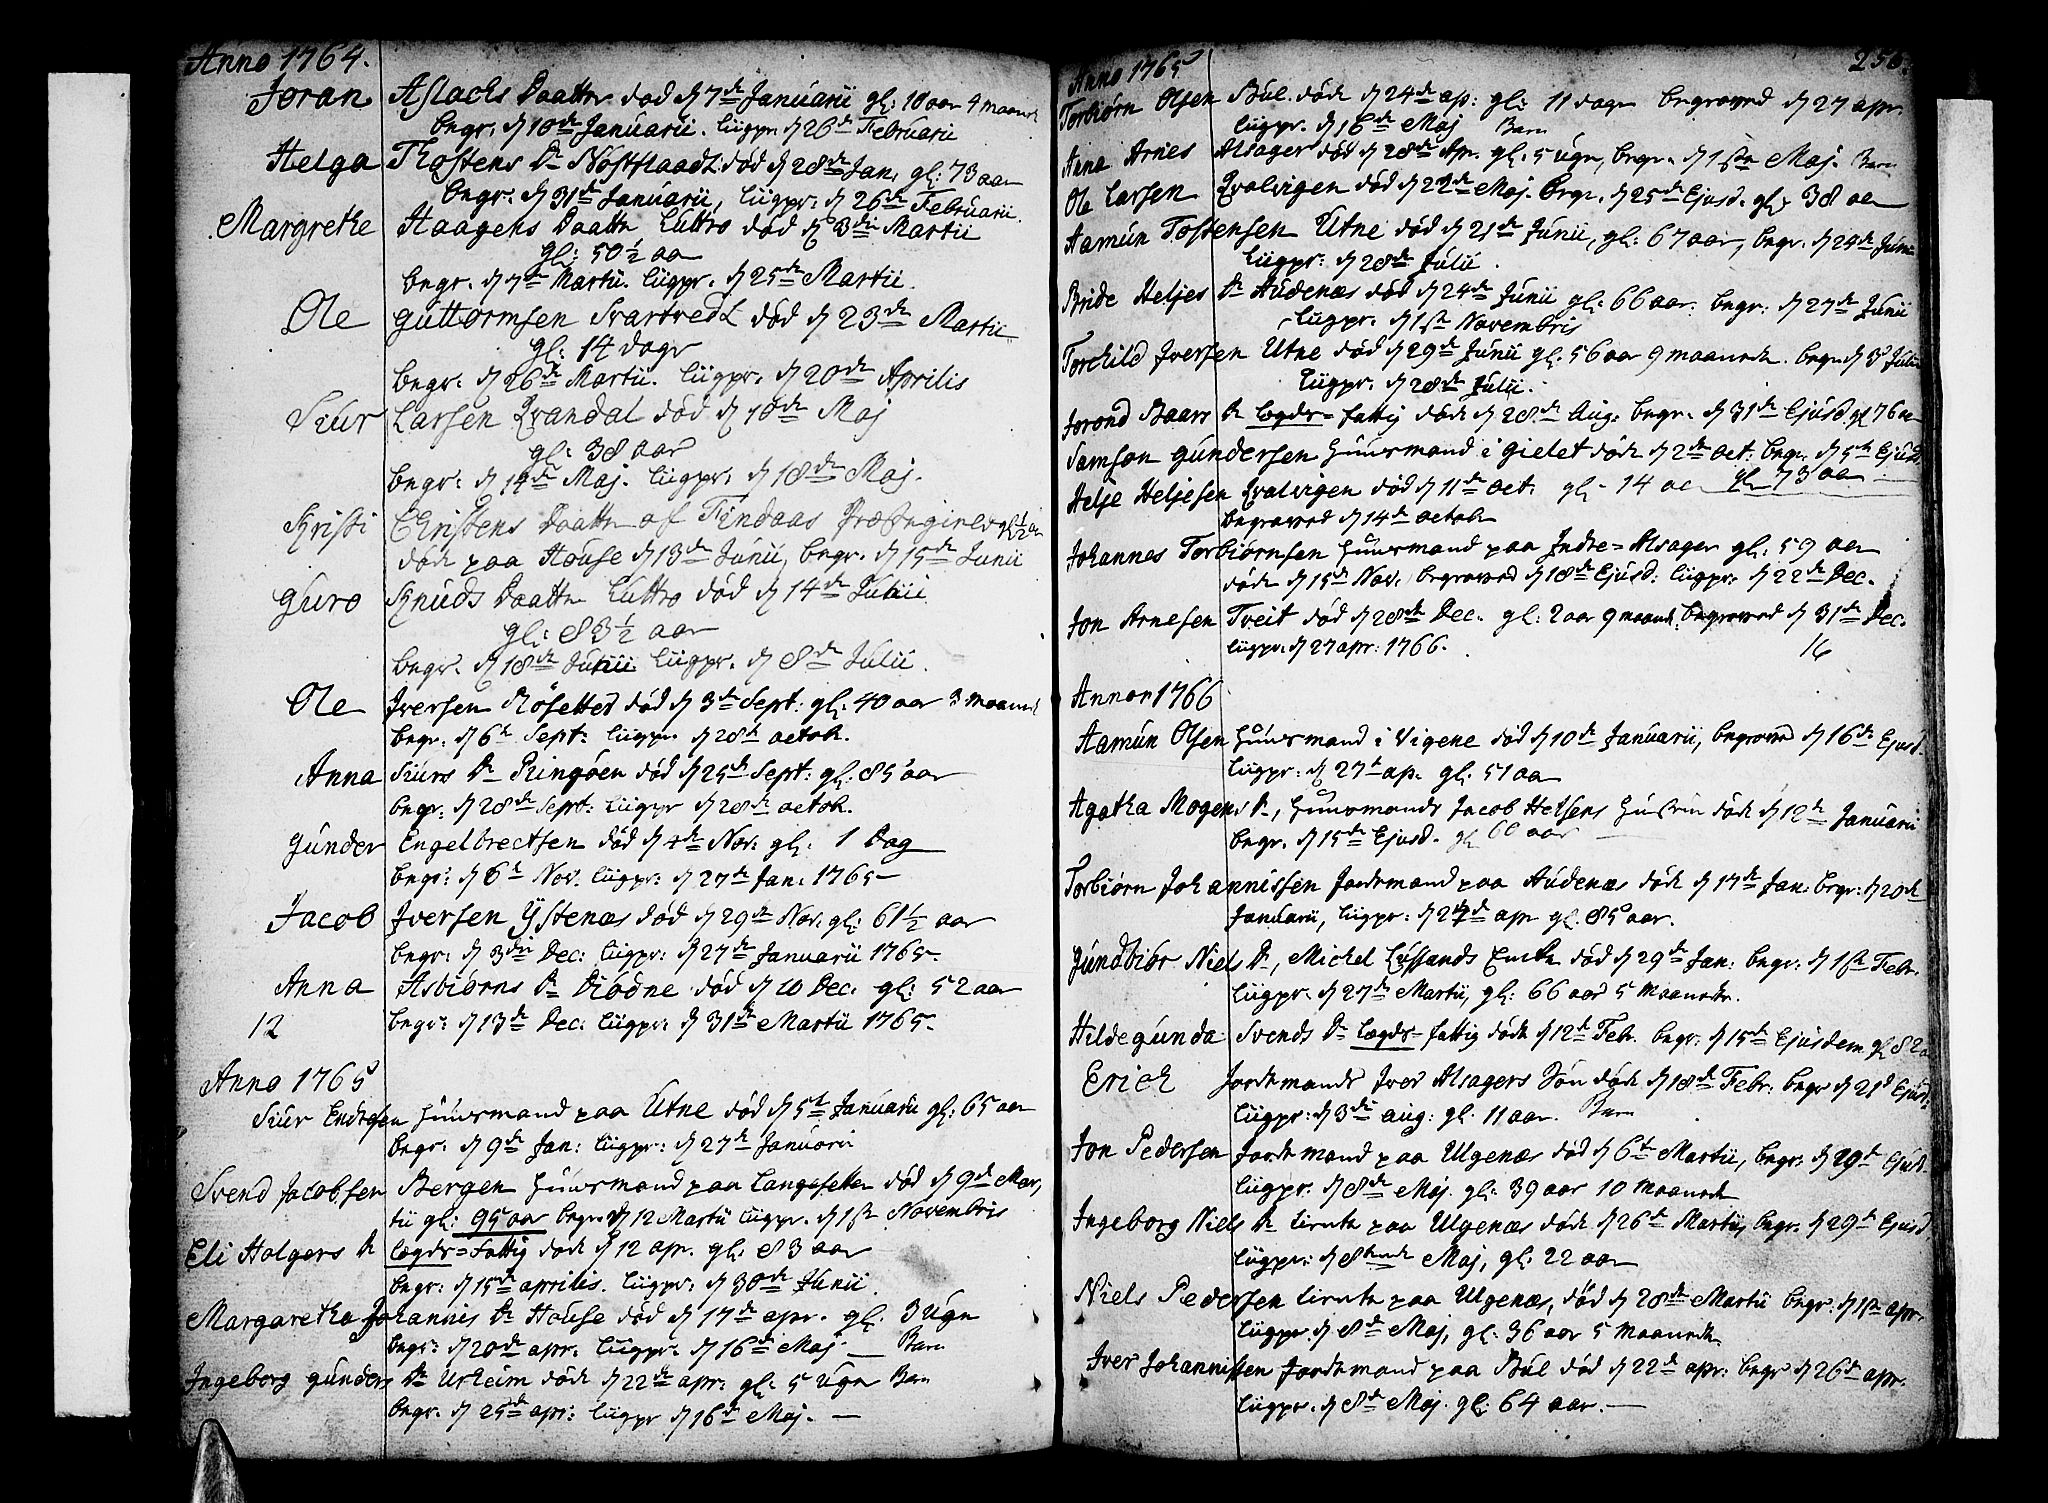 Anno 1764.
Joran Aslachs Daatter død d 7de Januarii gl: 10 aar 4 maaned
begr. d 10de Januarii. liigpr d 26de Februarii
Helga Thostens Dr død d 28de Jan. gl: 73 aar
begr. d 31de Januarii, liigpr: d 26de Februarii.
Margrethe Haagens Daatter Luttro død d 3die Martii
gl: 50 1/2 aar
begr. d 7de Martii. liigpr. d 25de Martii.
Ole Guttormsen Svartvedt død d 23de Martii
gl: 14 dage
begr: d 26de Martii. liigpr. d 20de Aprilis
Siur Larsen Qvandal død d 10de Maj
gl: 38 aar
begr: d 14de Maj. liigpr: d 18de Maj.
Kristi Christens Daatter af Findaas Præstegield gl 1/2 aar
døde paa House d 13de Junii, begr. d 15de Junii
Guro Knuds Daatter Luttro død d 14de Junii
gl: 83 1/2 aar
begr. d 18de Junii liigpr. d 8de Julii.
Ole Iversen Røsetter død d 3de Sept: gl: 40 aar 3 maaned
begr: d 6te Sept: liigpr. d 28de octob.
Anna Siurs Dr Ringøen død d 25de Sept: gl: 85 aar
begr: d 28de Sept: liigpr d 28de octob.
Gunder Engelbrectsen død d 4de Nov: gl: 1 Dag
begr: d 6te Nov. liigpr: d 27de Jan: 1765-
Jacob Iversen Ystenæs død d 29de Nov: gl: 61 1/2 aar
begr: d 3die Dec: liigpr: d 27de Januarii 1765-
Anna Asbiørns Dr Diødne død d 10 Dec: gl: 52 aar
12 begr: d 13de Dec: liigpr: d 31de Martii 1765-
Anno 1765
Siur Endresen Huusmand paa Utne død d 5te Januarii gl: 65 aar
begr: d 9de Jan: liigpr: d 27de Januarii
Svend Jacobsen Bergen Huusmand paa Langesetter død d 9de Mar,
tii gl: 95 aar begr. d 12 Martii liigpr. d 1ste Novembris
Eli Holgers Dr Lægds=fattig døde d 12 apr. gl: 83 aar
begr: d 15de aprilis. liigpr: d 30de Junii.
Margaretha Johannis Dr House død d 17de apr. gl. 3 Uger
begr: d 20de apr. liigpr. d 16de Maj — Barn
Ingeborg Gunders Dr Urheim døde d 22de apr: gl: 5 Uger Barn
begr. d 25de apr: liigpr d 16de Maj. —
256.
Anno 1765
Torbiørn Olsen Bul. døde d 24de ap: gl: 11 dage begraved d 27 apr.
liigpr. d 16de Maj Barn
Anna Arnes Alsager død d 28de Apr. gl: 5 uger, begr. d 1ste Maj. Barn
Ole Larsen Qvalvigen død d 22de Maj. begr. d 25de Ejusd. gl: 38 aar
Aamun Tostensen Utne død d 21de Junii, gl: 67 aar, begr. d 24de Junii
liigpr: d 28de Julii.
Bride Heljes Dr Audenæs død d 24de Junii gl: 66 aar: begr: d 27de Junii
liigpr. d 1ste Novembris
Torchild Iversen Utne død d 29de Junii gl: 56 aar 9 maaneder. begr. d 3de Julii
liigpr. d 28de Julii.
Jorond Baars Dr Lægds=fattig døde d 28de Aug: begr. d 31de Ejusd. gl 76 aar
Samson Gundersen Huusmand i Gielet døde d 2de oct: begr. d 5te Ejusd
gl 73 aar
Helje Heljesen Qvalvigen død d 11te oct. gl: 14 aar
begraved d 14de octob.
Johannes Torbiørnsen Huusmand paa Indre=Alsager gl: 59 aar
døde d 15de Nov. begraved d 18de Ejusd: liigpr: d 22de Dec.
Jon Arnesen Tveit død d 28de Dec. gl: 2 aar 9 maaned. begraved d 31de Dec.
liigpr. d 27 apr: 1766. 16
Anno 1766
Aamun Olsen Huusmand i Vigene død d 10de Januarii, begraved d 16de Ejusd.
liigpr: d 27de ap. gl: 51 aar
Agatha Mogens Dr, Huusmands Jacob Helsens Hustrue døde d 12te Januarii
begr. d 15de Ejusd. gl 60 aar
Torbiørn Johannissen Jordmand paa Audenæs døde d 17de Jan: begr: d 20de
Januarii, liigpr: d 27de apr gl: 85 aar.
Gundbiør Niels Dr, Michel Lussands Encke død d 29de Jan: begr: d 1ste Febr.
liigpr. d 27de Martii, gl: 66 aar 5 Maaneder.
Hildegunda Svends Dr Lægds=fattig døde d 12te Febr. begr: d 15de Ejusdem gl 82 a
Erich Jordmands Iver Alsagers Søn døde d 18de Febr: begr d 21d Ejusd:
liigpr: d 3die aug: gl: 11 aar. Barn
Jon Pedersen Jordmand paa Ulgenæs død d 6te Martii, begr: d 29de Ejusd.
liigpr: d 8de Maj. gl: 39 aar 10 Maaneder
Ingeborg Niels Dr paa Ulgenæs døde d 26de Martii, begr. d 29de Ejusd
liigpr: d 8de Maj, gl: 22 aar
Niels Pedersen paa Ulgenæs, død d 28de Martii begr: d 1ste apr.
liigpr. d 8de Maj, gl: 36 aar 5 Maaneder
Iver Johannissen Jordmand paa Bul død d 22de apr: begr d 26de apr.
liigpr. d 8de Maj. gl: 64 aar. —